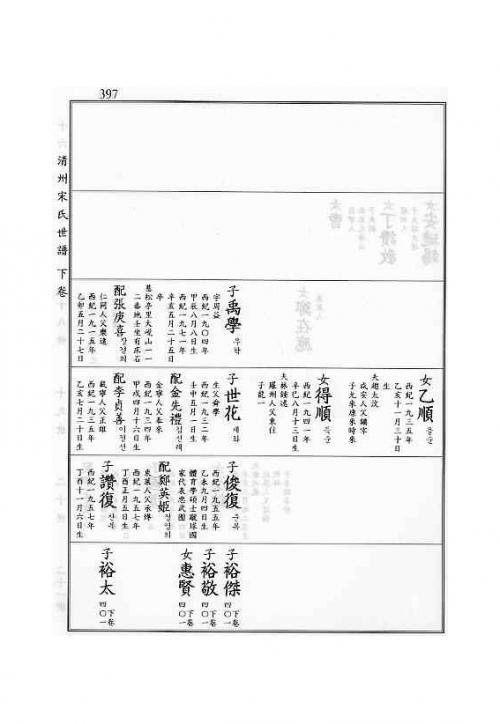 397
清州宋氏世譜 下卷
子禹學 우학
字周益
西紀一九〇四年
甲辰八月八日生
西紀一九七一年
辛亥五月二十五日
卒
墓松亭里大峴山一一
二番地壬坐有床石
配張庚喜 장경희
仁同人父泰遠
西紀一九一五年
乙卯五月二十七日
女乙順 을순
西紀一九三五年
乙亥十一月三十日
生
夫趙太汶
咸安人父鏞宇
子允來康來時來
女得順 득순
西紀一九四一年
辛巳八月十三日生
夫林鍾述
羅州人父東柱
子龍一
子世花 세화
生父舜學
西紀一九三二年
壬申五月一日生
配金先禮 김선례
金寧人父奉來
西紀一九三四年
甲戌四月十六日生
配李貞善 이정선
載寧人父正雨
西紀一九三五年
乙亥七月二十日生
子俊復 준복
西紀一九五五年
乙未九月四日生
體育學碩士蹴球國
家代表忠武團
配鄭英姬 정영희
東萊人父承燁
西紀一九五七年
丁酉正月五日生
子讚復 찬복
西紀一九五七年
丁酉十一月六日生
子裕傑 下卷四〇一
子裕敬 下卷四〇一
女惠賢 下卷四〇一
子裕太 下卷四〇一